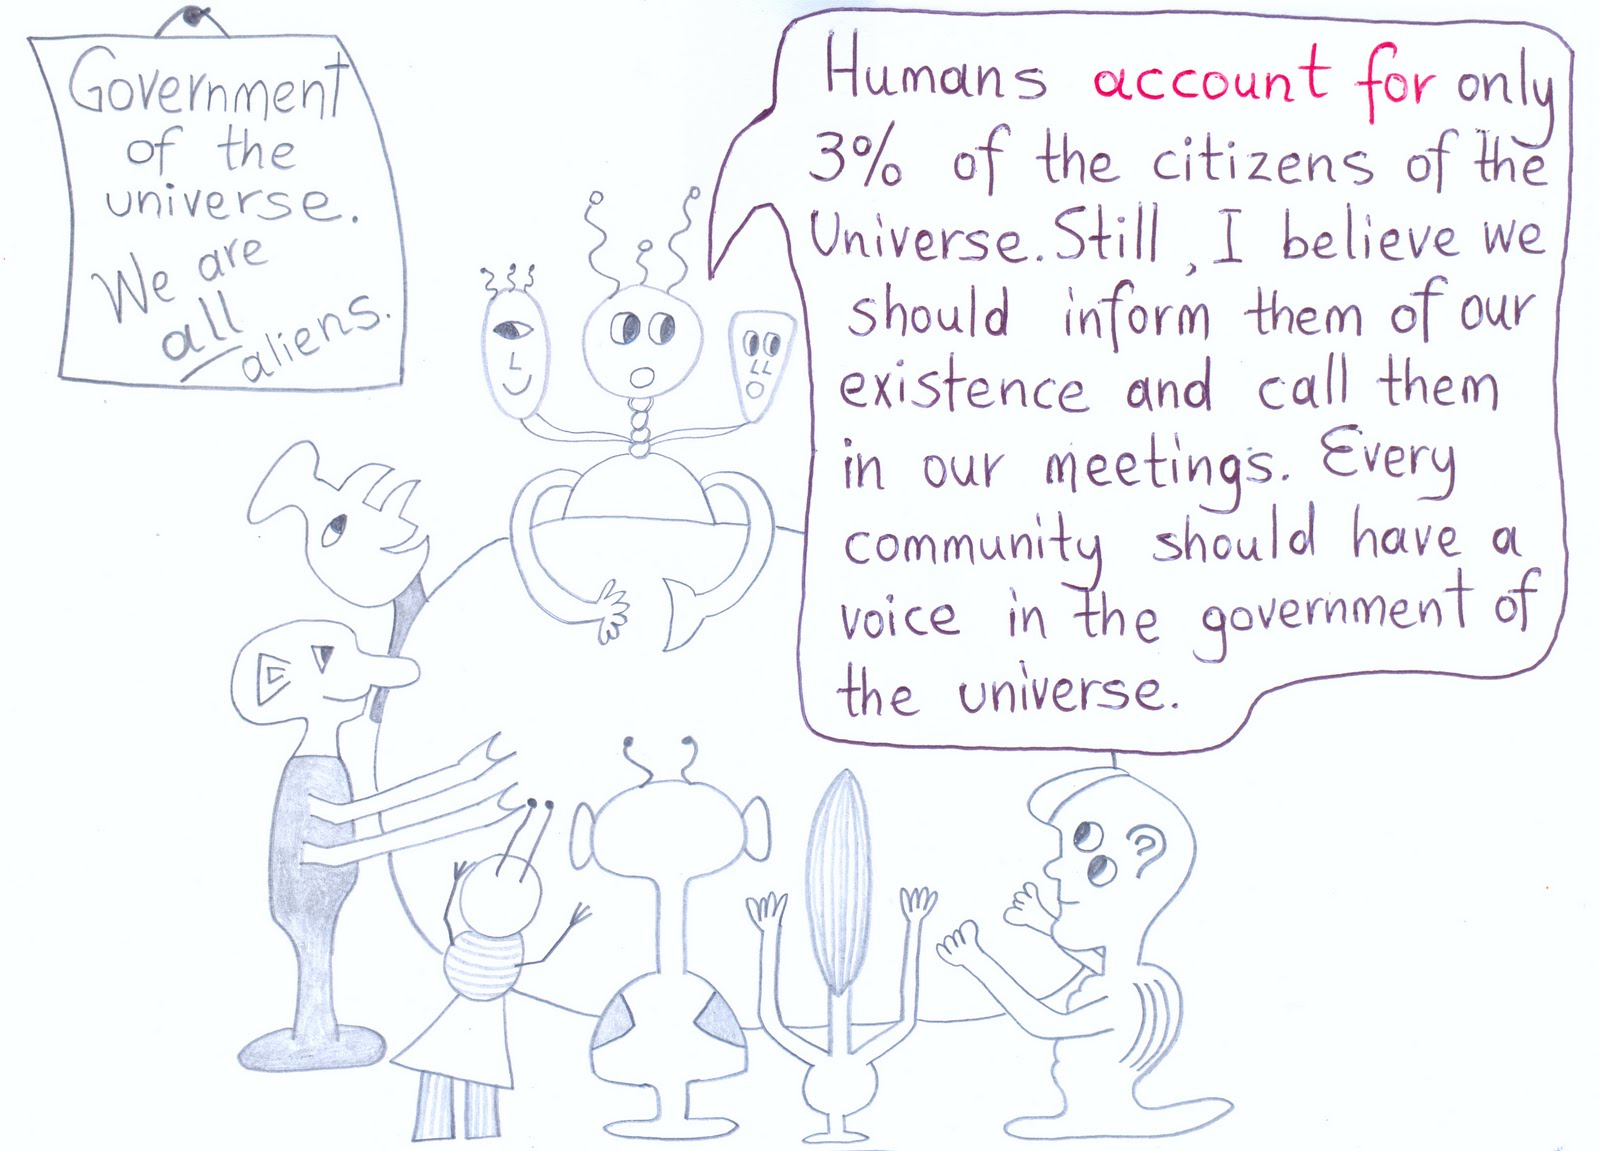 Government
of the
universe.
We are
all
aliens.
Humans account for only
3% of the citizens of the
Universe. Still, I believe we
should inform them of our
existence and call them
in our meetings. Every
community should have a
voice in the government of
the universe.